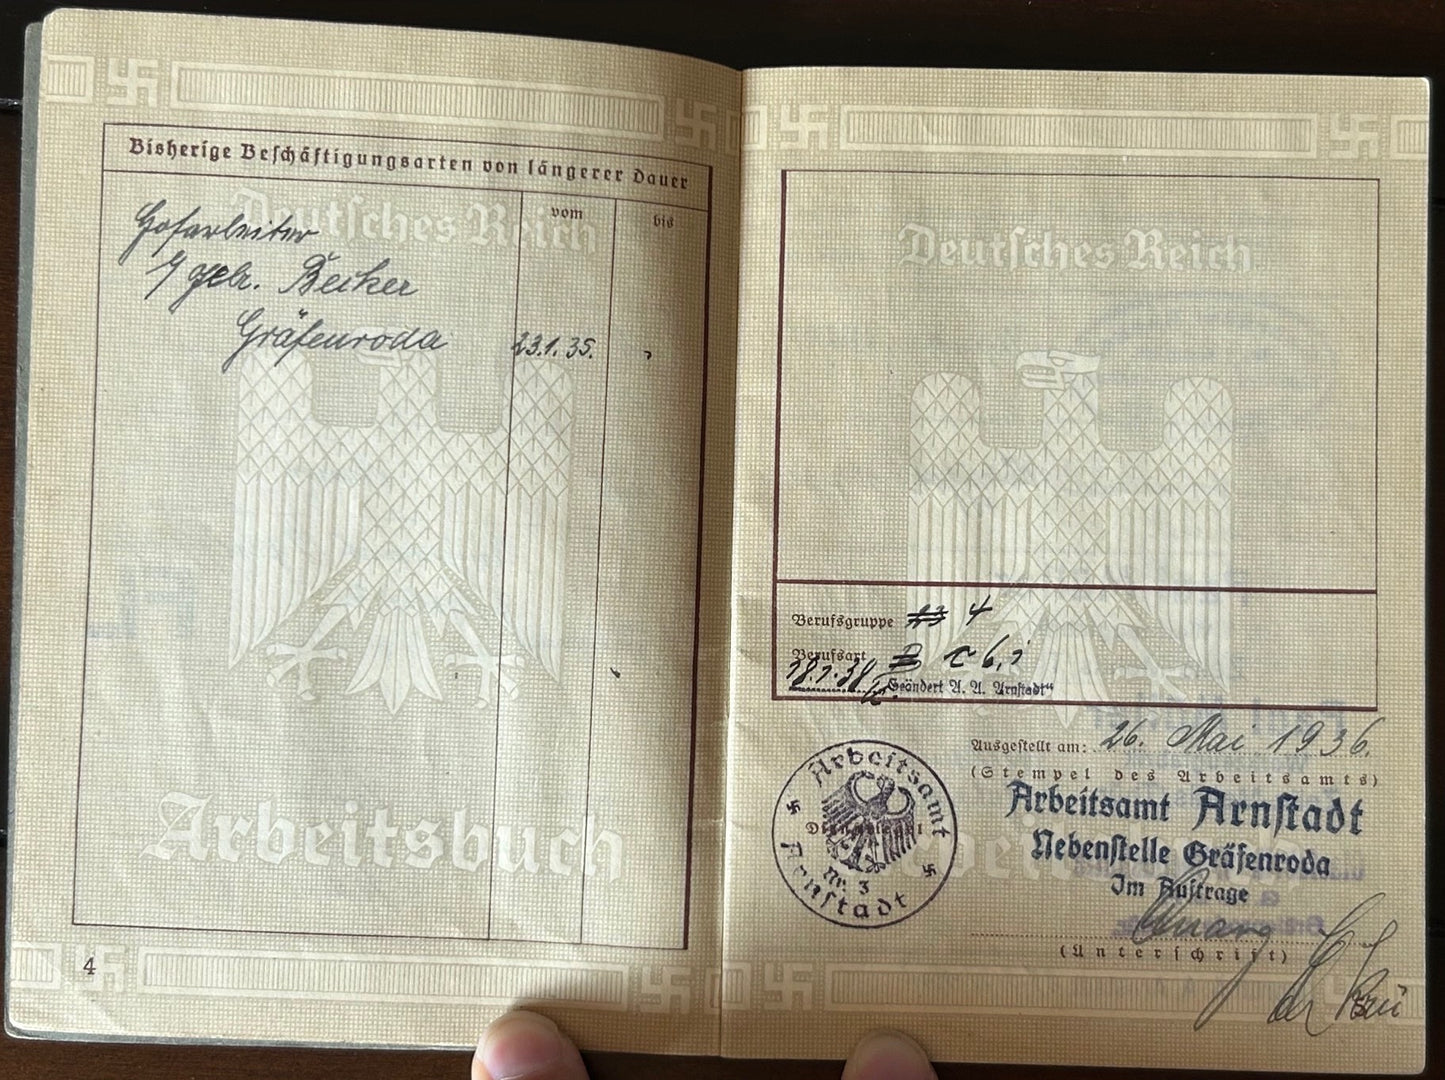 Bisherige Beschäftigungsarten von längerer Dauer
vom
bis
Hofarbeiter
gebr. Becker
Gräfenroda 23.1.35.
Deutsches Reich
Arbeitsbuch
4
Deutsches Reich
Berufsgruppe 4
Berufsart
"Geändert A. A. Arnstadt"
Ausgestellt am: 26. Mai 1936.
(Stempel des Arbeitsamts)
Arbeitsamt Arnstadt
Nebenstelle Gräfenroda
Im Auftrage
(Unterschrift)
Arbeitsamt
Nr. 3
Arnstadt